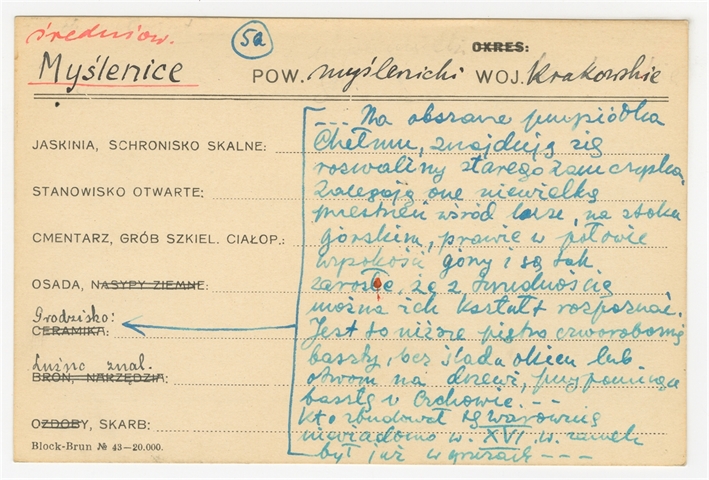 średniow.
5a
OKRES:
Myślenice POW. myślenicki WOJ. Krakowskie
--- Na obszarze przysiółka
JASKINIA, SCHRONISKO SKALNE: Chełmu, znajdują się
rozwaliny starego zamczyska.
STANOWISKO OTWARTE: Zalegają one niewielką
przestrzeń wśród lasu, na stoku
CMENTARZ, GRÓB SZKIEL. CIAŁOP.: górskim, prawie w połowie
wysokości góry i są tak
OSADA, NASYPY ZIEMNE: zarosłe, że z trudnością
można ich kształt rozpoznać.
Grodzisko:
CERAMIKA: Jest to niższe piętro czworobocznej
baszty, bez śladu okien lub
Luźno znal.
BROŃ, NARZĘDZIA: otworu na drzwi, przypominająca
basztę w Czchowie. --
OZDOBY, SKARB: Kto zbudował tę warownię
niewiadomo w. XVI w. zamek
Block-Brun № 43-20.000. był już w gruzach ---